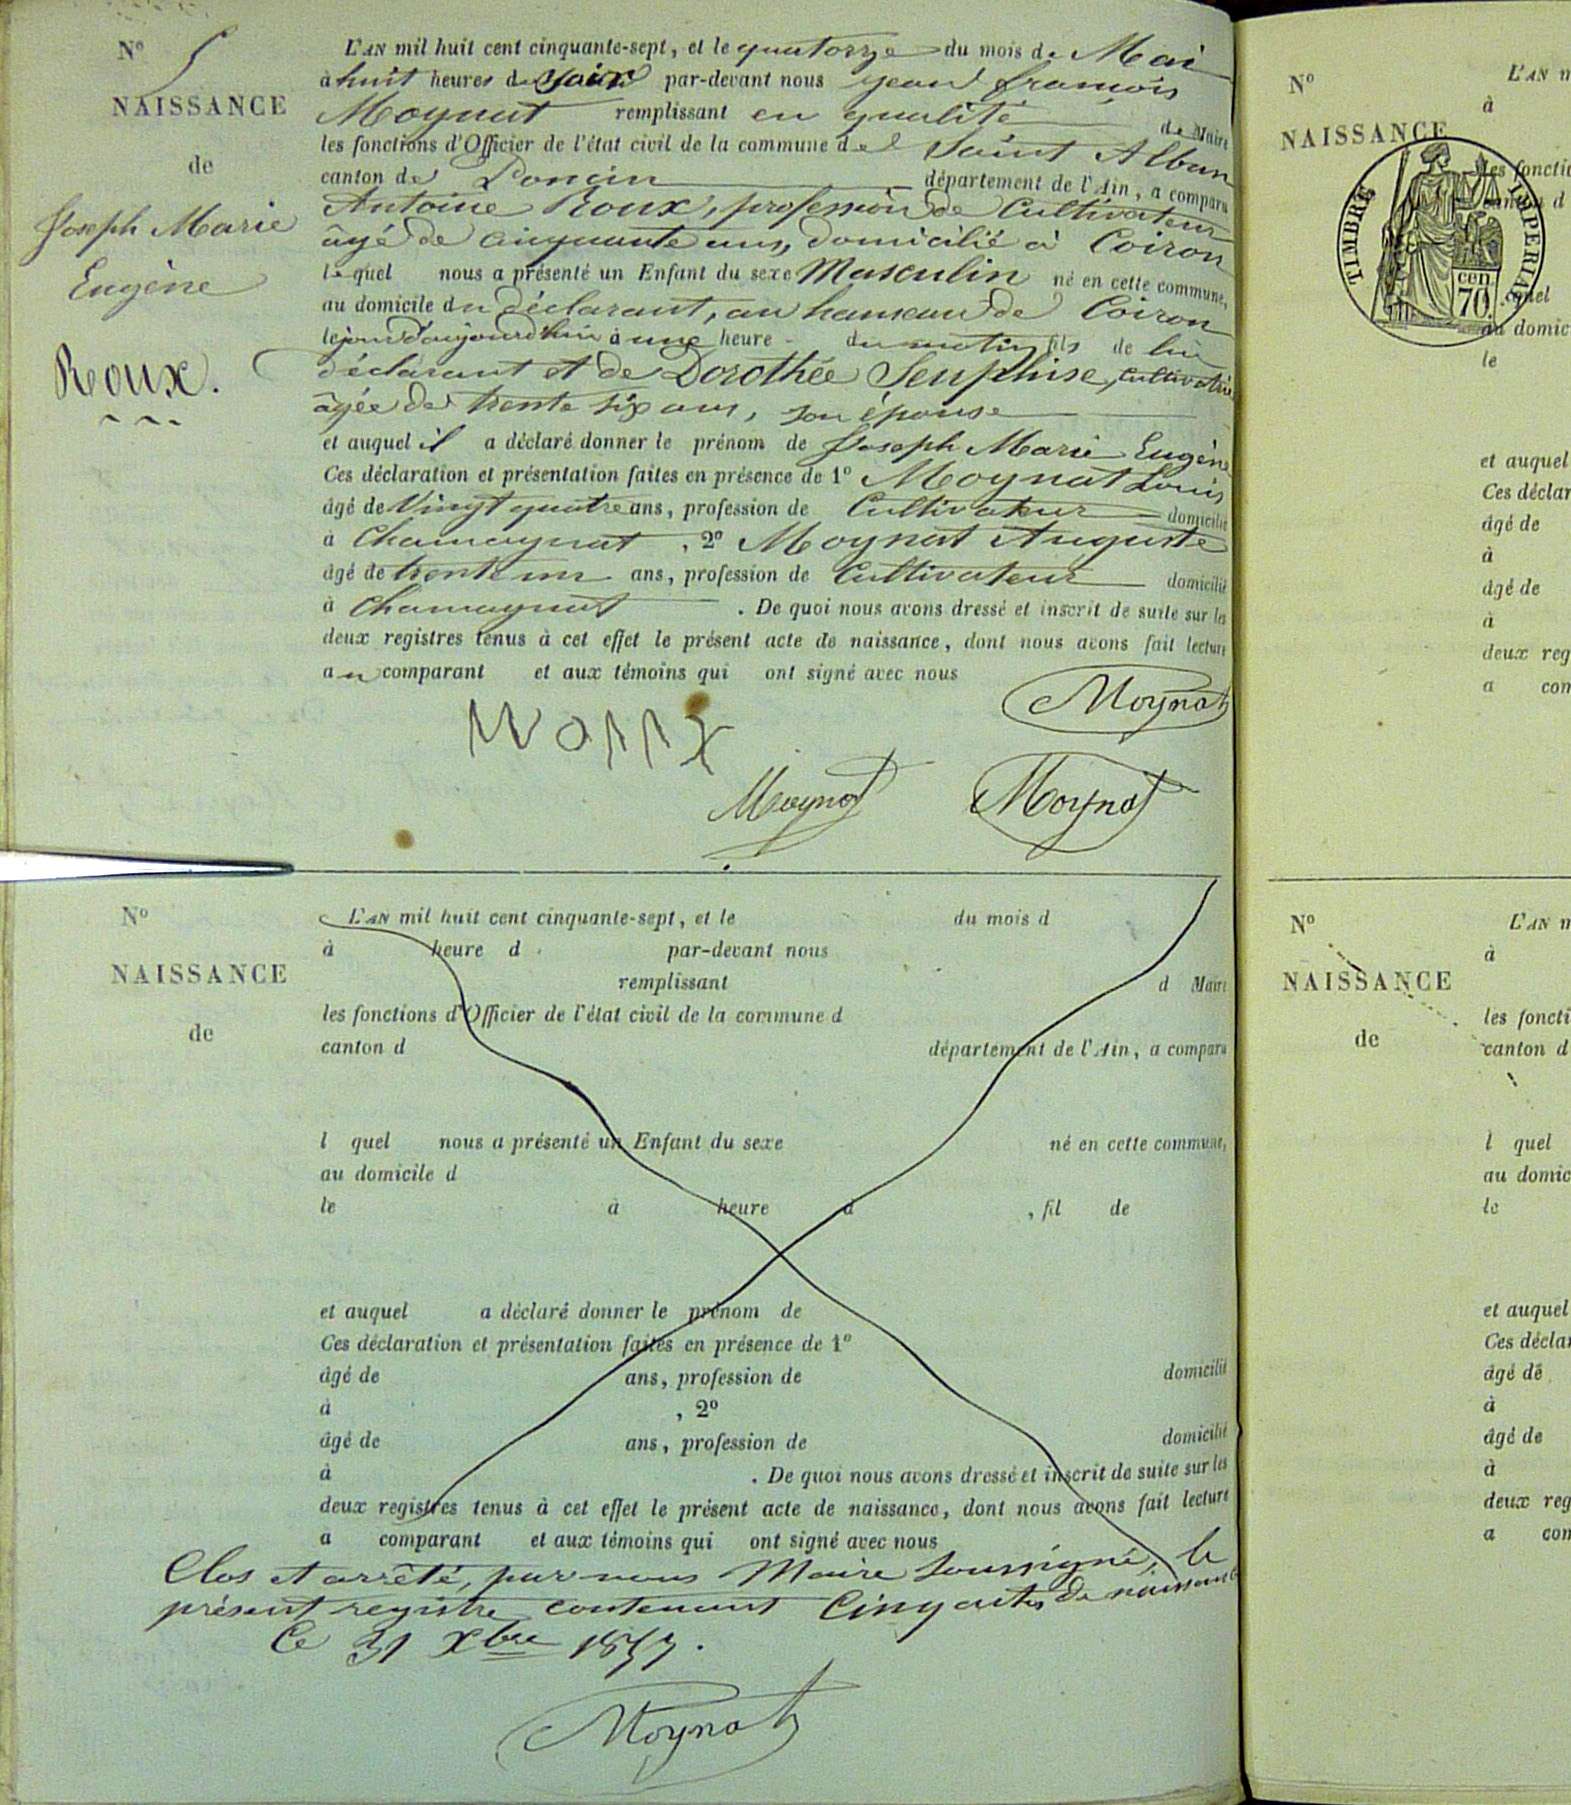 N° 5
NAISSANCE
de
Joseph Marie
Eugène
Roux.
L'AN mil huit cent cinquante-sept, et le quatorze du mois de Mai
à huit heures du soir par-devant nous Jean François
Moynat remplissant en qualité de Maire
les fonctions d'Officier de l'état civil de la commune de Saint Alban
canton de Poncin département de l'Ain, a comparu
Antoine Roux, profession de Cultivateur
âgé de cinquante ans, domicilié à Coiron
lequel nous a présenté un Enfant du sexe Masculin né en cette commune,
au domicile du déclarant, au hameau de Coiron
le jour d'aujourd'hui à une heure du matin fils de lui
déclarant et de Dorothée Seuphise, cultivatrice
âgée de trente six ans, son épouse
et auquel il a déclaré donner le prénom de Joseph Marie Eugène
Ces déclaration et présentation faites en présence de 1° Moynat Louis
âgé de Vingt quatre ans, profession de Cultivateur domicilié
à Chamagnat, 2° Moynat Auguste
âgé de trente un ans, profession de Cultivateur domicilié
à Chamagnat. De quoi nous avons dressé et inscrit de suite sur les
deux registres tenus à cet effet le présent acte de naissance, dont nous avons fait lecture
au comparant et aux témoins qui ont signé avec nous
Moynat
Moynat Moynat
N°
NAISSANCE
de
L'AN mil huit cent cinquante-sept, et le du mois d
à heure d par-devant nous
remplissant d Maire
les fonctions d'Officier de l'état civil de la commune d
canton d département de l'Ain, a comparu
l quel nous a présenté un Enfant du sexe né en cette commune,
au domicile d
le à heure d , fil de
et auquel a déclaré donner le prénom de
Ces déclaration et présentation faites en présence de 1°
âgé de ans, profession de domicilié
à , 2°
âgé de ans, profession de domicilié
à . De quoi nous avons dressé et inscrit de suite sur les
deux registres tenus à cet effet le présent acte de naissance, dont nous avons fait lecture
a comparant et aux témoins qui ont signé avec nous
Clos et arrêté, par nous Maire soussigné, le
présent registre contenant Cinq actes de naissance
Ce 31 Xbre 1857.
Moynat
N°
NAISSANCE
TIMBRE IMPERIAL
cen
70
L'AN
à
les fonctio
d
quel
au domic
le
et auquel
Ces déclar
âgé de
à
âgé de
à
deux reg
a com
N°
NAISSANCE
de
L'AN
à
les foncti
canton d
l quel
au domic
le
et auquel
Ces déclar
âgé de
à
âgé de
à
deux reg
a com